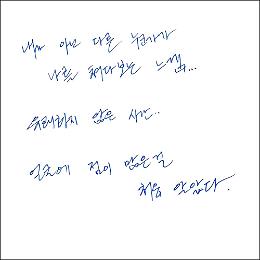 내가 아닌 다른 누군가가
나를 쳐다보는 느낌...
유쾌하지 않은 시간..
얼굴에 점이 많은걸
처음 알았다.